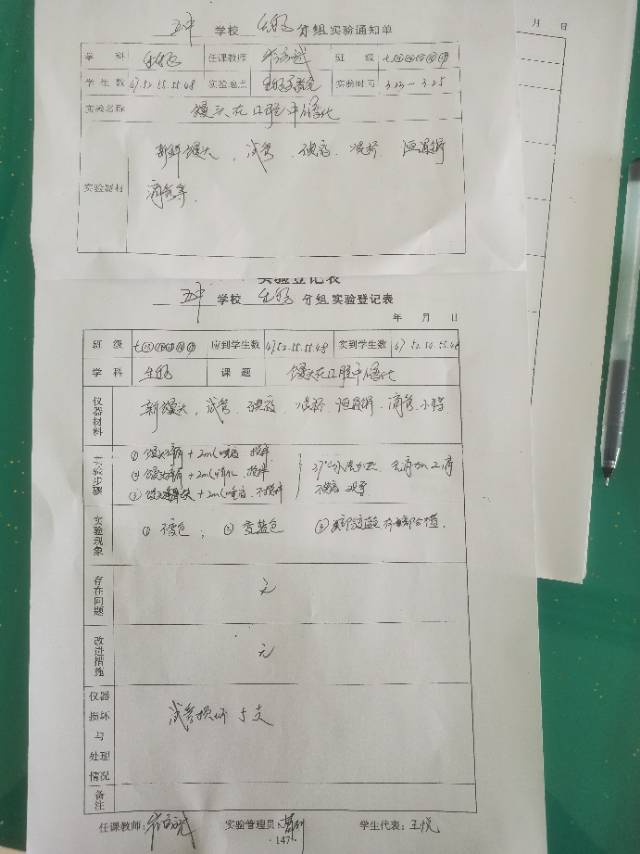 五中 学校 生物 分组实验通知单
学科 生物 任课教师 班级 七
学生数 47.52.55.55.48 实验地点 实验时间 3.23—3.25
实验名称 馒头在口腔中的变化
实验器材 新鲜馒头、试管、碘液、烧杯、恒温箱
滴管等
月 日
实验登记表
五中 学校 生物 分组实验登记表
年 月 日
班级 七 应到学生数 47.52.55.55.48 实到学生数 47 52.
学科 生物 课题 馒头在口腔中的变化
仪器材料 新鲜馒头、试管、碘液、烧杯、恒温箱、滴管、小
实验步骤 ① 馒头碎屑+2ml唾液 搅拌
② 馒头碎屑+2ml清水 搅拌
③ 馒头块+2ml唾液 不搅拌
37℃水 观察
实验现象 ① 不变色; ② 变蓝色 ③ 部分变蓝
存在问题 无
改进措施 无
仪器损坏与处理情况 试管损坏5支
备注
任课教师: 实验管理员: 学生代表:王悦
·147·